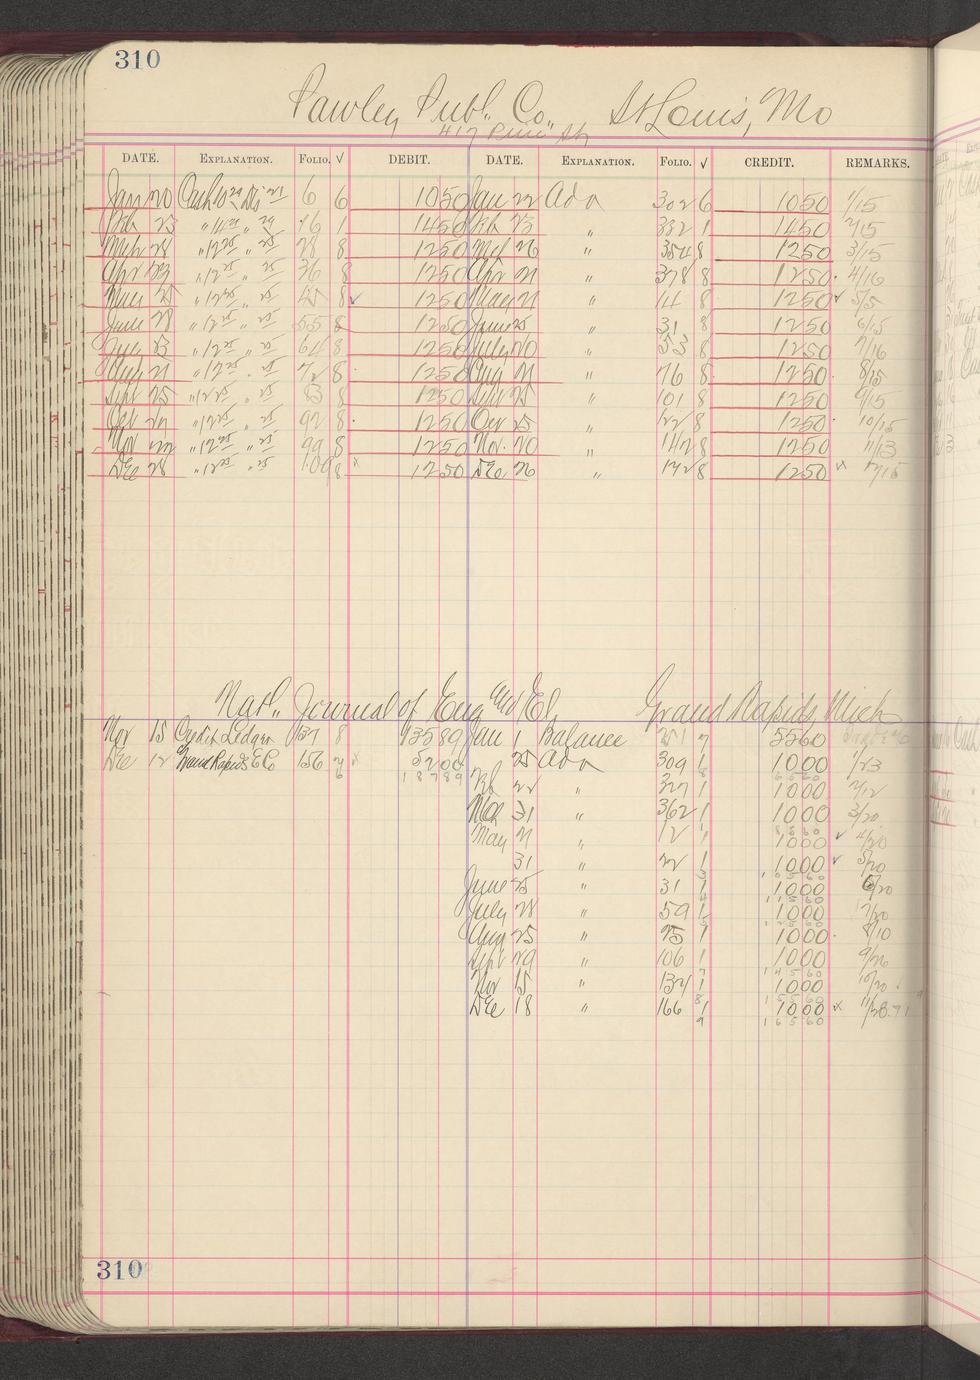 310
Pawley Publ. Co., St Louis, Mo
417 Pine St
DATE. EXPLANATION. FOLIO. √ DEBIT. DATE. EXPLANATION. FOLIO. √ CREDIT. REMARKS.
Jan 20 Cash 6 6 1050 Jan 22 Adv 302 6 1050 1/15
Feb 23 " 16 1 1450 Feb 23 " 332 1 1450 2/15
Mch 28 " 12 25 " 25 28 8 1250 Mch 26 " 354 8 1250 3/15
Apr " 12 25 " 25 36 8 1250 Apr 21 " 378 8 1250 4/16
" 12 25 " 25 45 8 √ 1250 May 21 " 14 8 1250 √ 5/15
June 28 " 12 25 " 25 55 8 1250 June 25 " 31 8 1250 6/15
" 12 25 " 25 64 8 1250 July 20 " 53 8 1250 7/16
Aug 21 " 12 25 " 25 72 8 1250 Aug 21 " 76 8 1250 8/15
Sept 25 " 12 25 " 25 83 8 1250 Sept 25 " 101 8 1250 9/15
Oct " 12 25 " 25 92 8 1250 Oct 25 " 122 8 1250 10/15
Nov 22 " 12 25 " 25 99 8 1250 Nov. 20 " 142 8 1250 11/13
Dec 28 " 12 25 " 25 109 8 x 1250 Dec 26 " 172 8 1250 x 12/15
Natl. Journal of Eng and El, Grand Rapids Mich
Nov 15 Credit Ledger 137 8 13589 Jan 1 Balance 7 5560
Dec 12 Grand Rapids E Co 156 x 5200 25 Adv 309 1 1000 1/23
18789 6560
Feb 22 " 327 1 1000 2/12
Mch 31 " 362 1 1000 3/20
8560
May 21 " 12 1 1000 √ 4/20
31 " 22 1 1000 √ 5/20
10560
June 25 " 31 1 1000 6/20
11560
July 28 " 59 1 1000 7/20
12560
Aug 25 " 75 1 1000 8/10
Sept 29 " 106 1 1000 9/26
14560
Nov 15 " 137 1 1000 10/20
15560
Dec 18 " 166 1 1000 x
9 16560
310